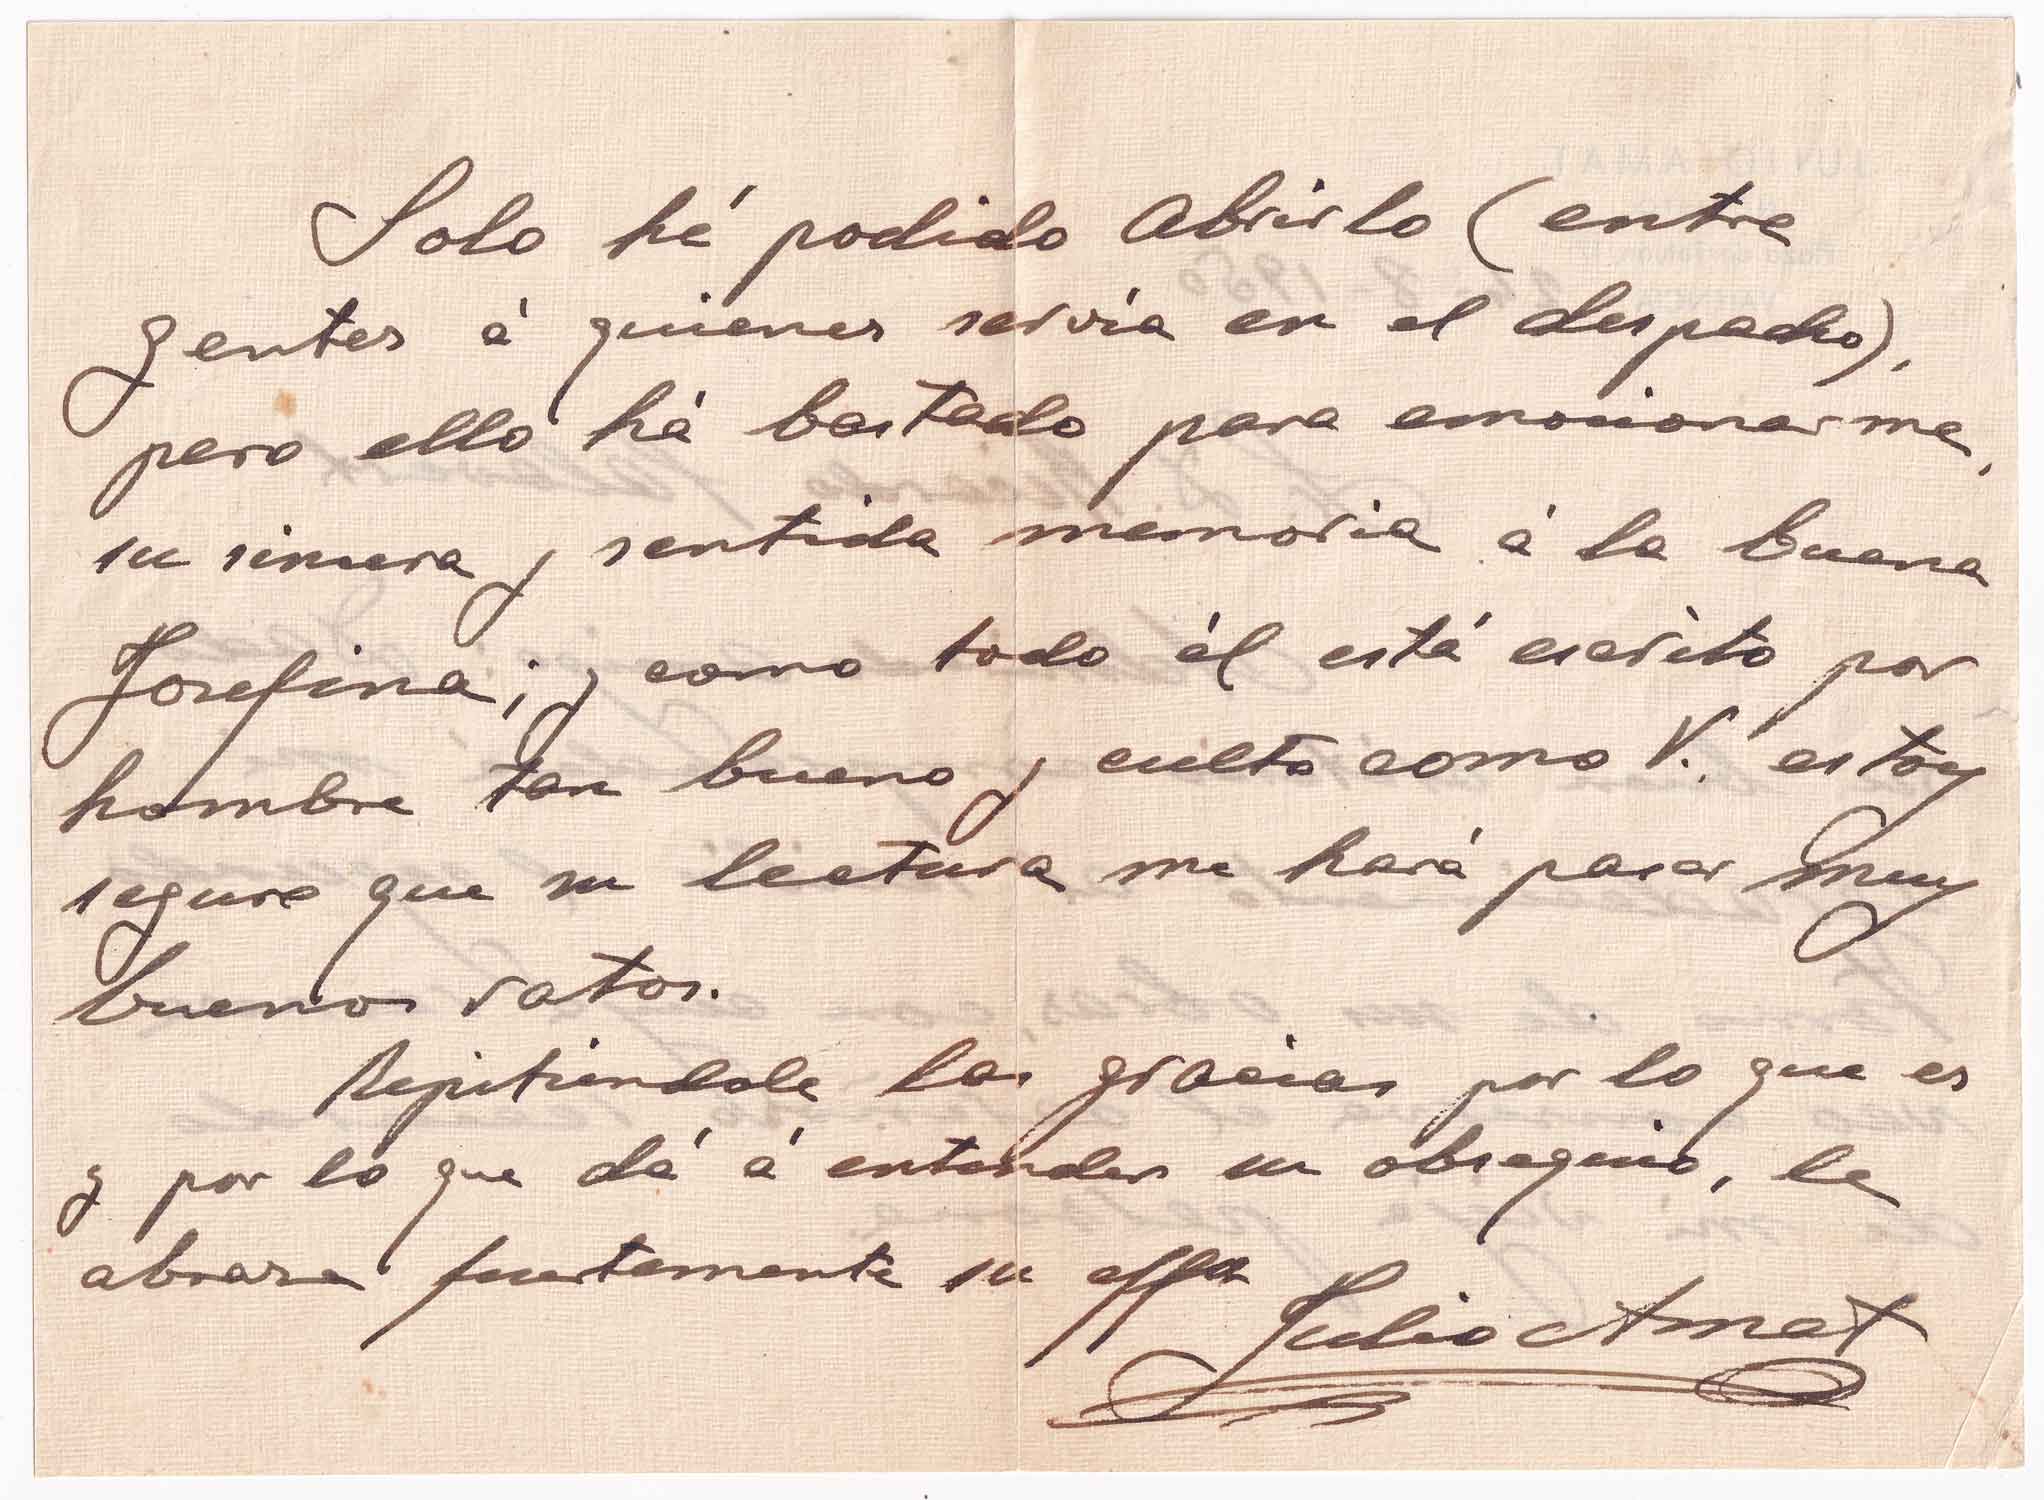 Solo hé podido abrirlo (entre
gentes á quienes servía en el despacho),
pero ello há bastado para emocionarme,
su sincera y sentida memoria á la buena
Josefina; y como todo él está escrito por
hombre tan bueno y culto como V. estoy
seguro que su lectura me hará pasar muy
buenos ratos.
Repitiendole las gracias por lo que es
y por lo que dá á entender su obsequio, le
abraza fuertemente su affmo
Julio Amat